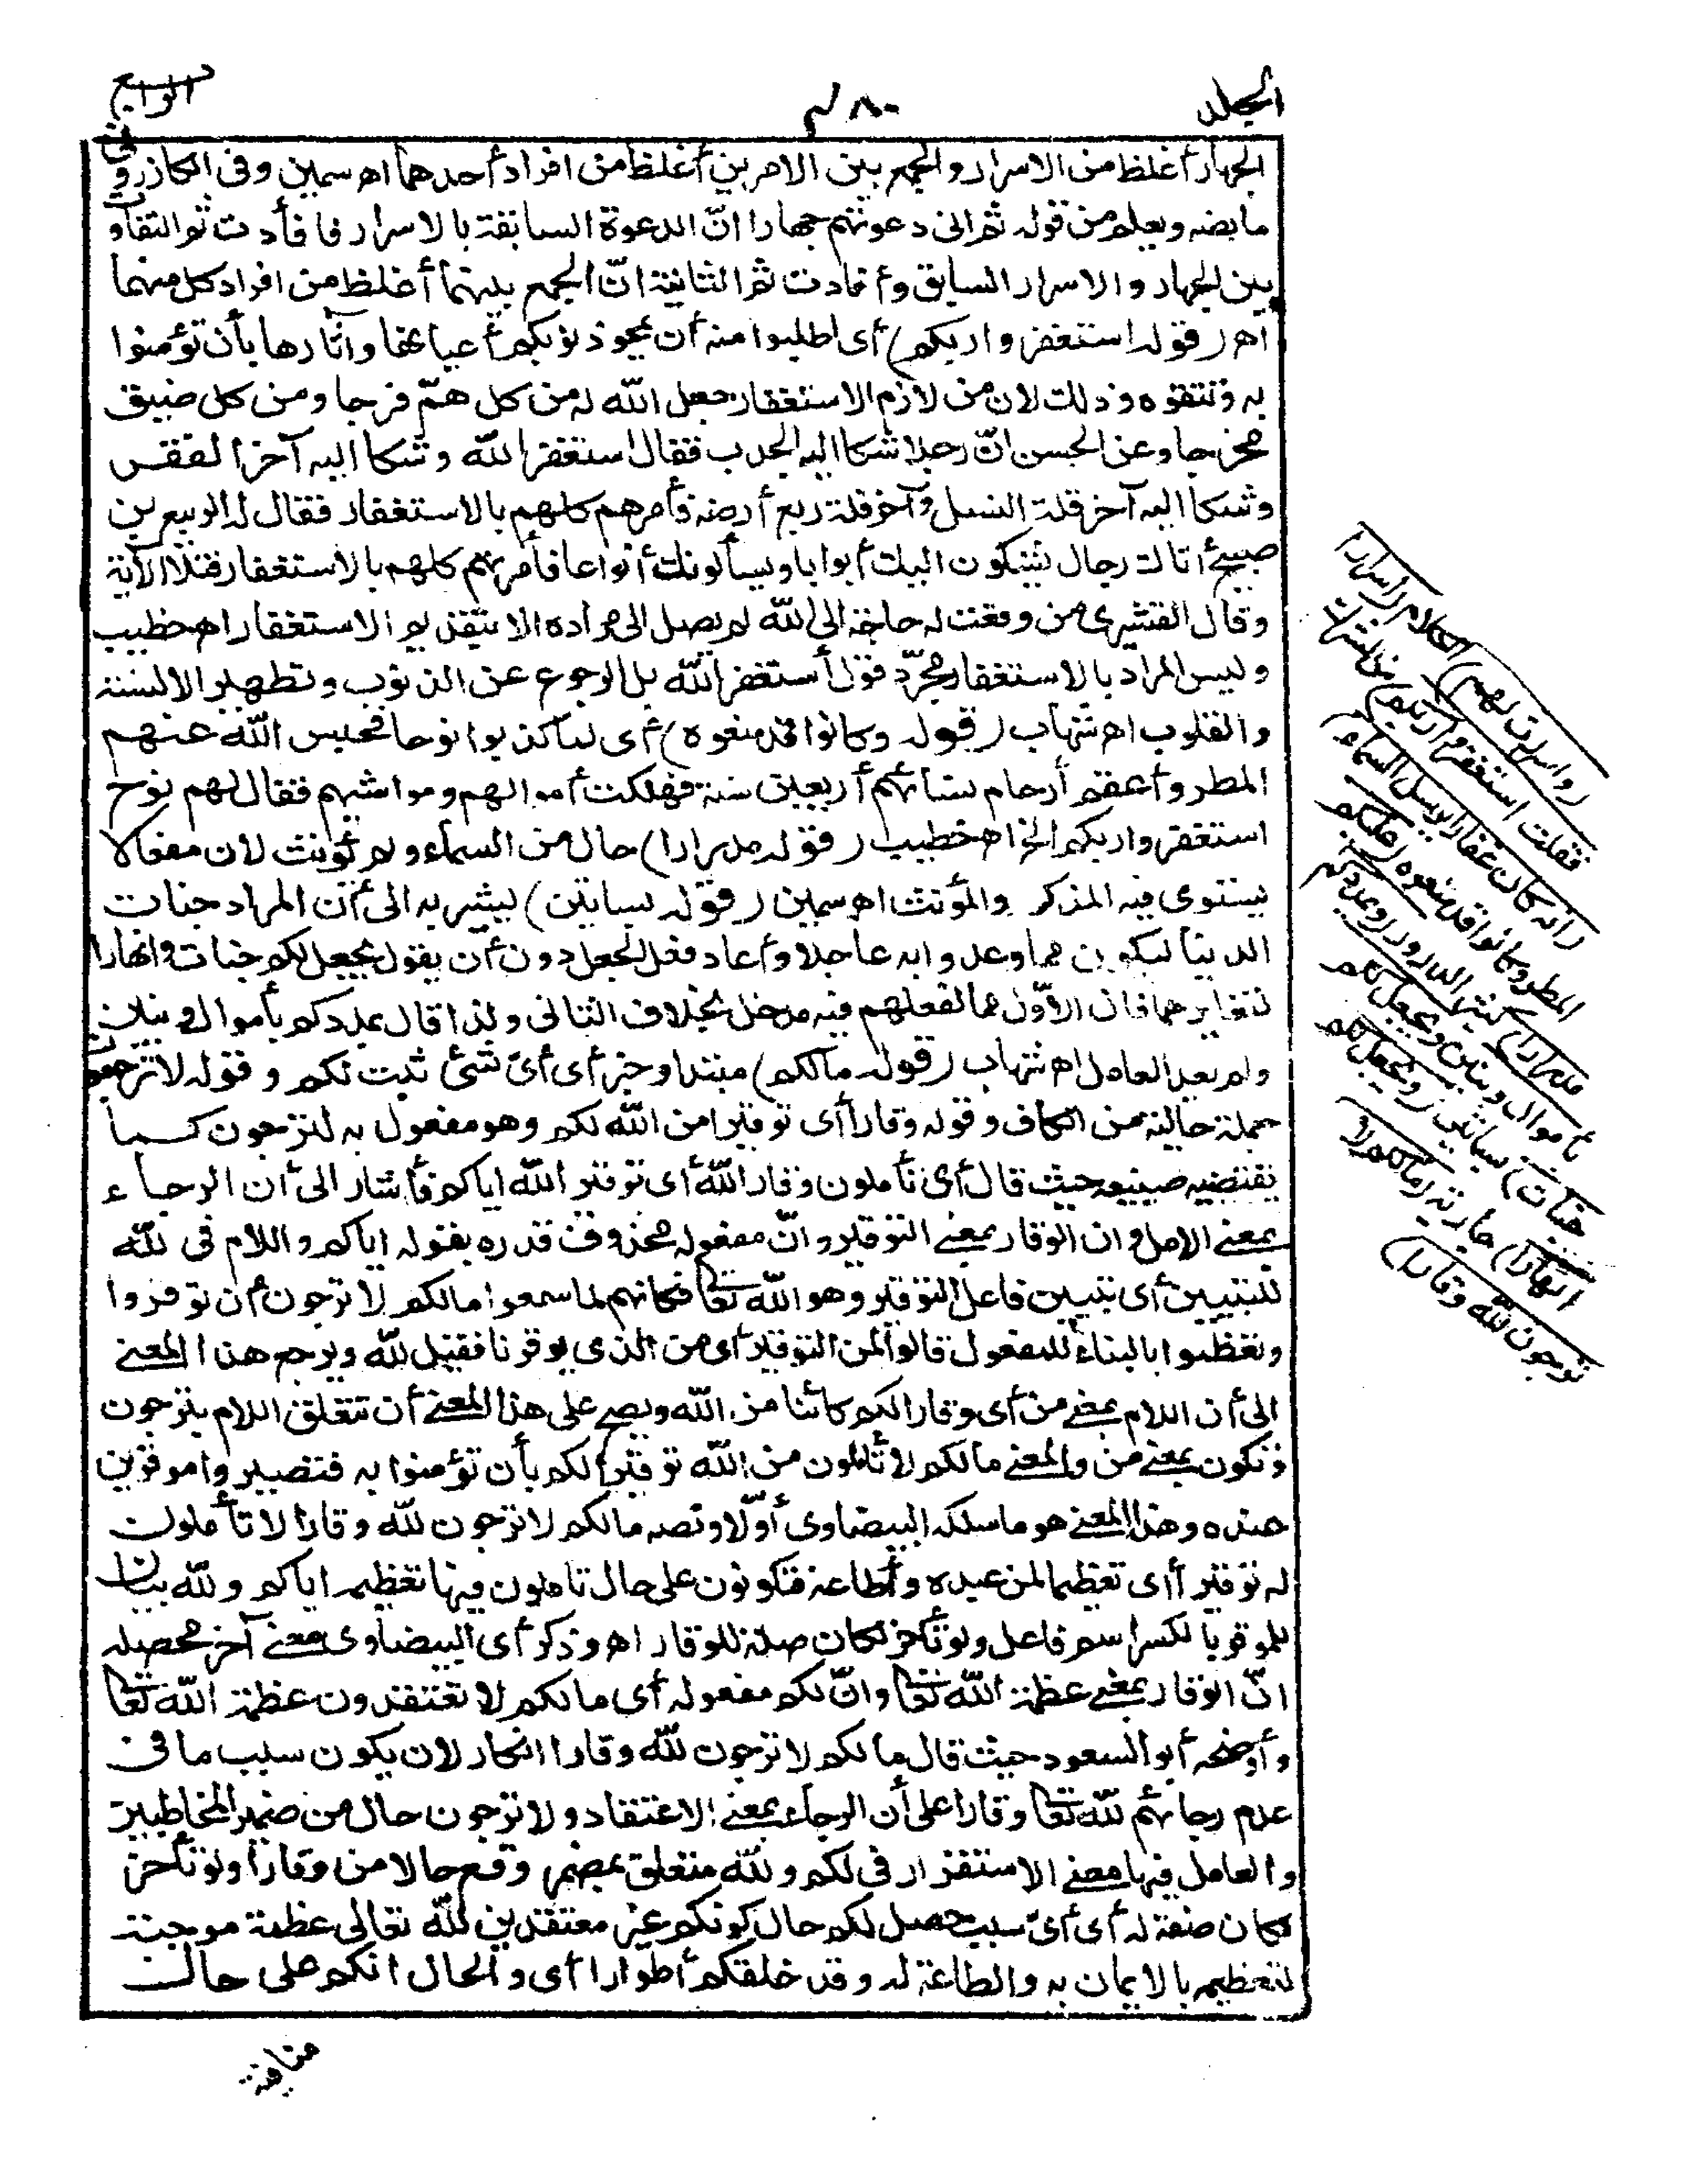 المجلد
٤٨٠
الرابع
الجهار أغلظ من الاسرار والجمع بين الامرين أغلظ من افراد أحدهما اه سمين وفى الكازرونى
ما نصه ويعلم من قوله ثم انى دعوتهم جهارا انّ الدعوة السابقة بالاسرار فأفادت ثم التفاوت
بين الجهار والاسرار السابق وأفادت ثم الثانية انّ الجمع بينهما أغلظ من افراد كل منهما
اه (قوله استغفروا ربكم) أى اطلبوا منه أن يمحو ذنوبكم أعيانها وآثارها بأن تؤمنوا
به وتتقوه وذلك لان من لازم الاستغفار جعل الله له من كل همّ فرجا ومن كل ضيق
مخرجا وعن الحسن انّ رجلا شكا اليه الجدب فقال استغفر الله وشكا اليه آخر الفقر
وشكا اليه آخر قلة النسل وآخر قلة ريع أرضه فأمرهم كلهم بالاستغفار فقال له الربيع بن
صبيح أتاك رجال يشكون اليك أبوابا ويسألونك أنواعا فأمرتهم كلهم بالاستغفار فتلا الآية
وقال القشيرى من وقعت له حاجة الى الله لم يصل الى مراده الا بتقديم الاستغفار اه خطيب
وليس المراد بالاستغفار مجرّد قول أستغفر الله بل الرجوع عن الذنوب وتطهير الالسنة
والقلوب اه شهاب (قوله وكانوا قد منعوه) أى لما كذبوا نوحا فحبس الله عنهم
المطر وأعقم أرحام نسائهم أربعين سنة فهلكت أموالهم ومواشيهم فقال لهم نوح
استغفروا ربكم الخ اه خطيب (قوله مدرارا) حال من السماء ولم تؤنث لان مفعالا
يستوى فيه المذكر والمؤنث اه سمين (قوله بساتين) يشير به الى أن المراد جنات
الدنيا ليكون مما وعدوا به عاجلا وأعاد فعل الجعل دون أن يقول يجعل لكم جنات وانهارا
لتغايرهما فان الاوّل مما لفعلهم فيه مدخل بخلاف الثانى ولذا قال يمددكم بأموال وبنين
ولم يعد العامل اه شهاب (قوله مالكم) مبتدا وخبر أى أىّ شئ ثبت لكم وقوله لا ترجون
جملة حالية من الكاف وقوله وقارا أى توقيرا من الله لكم وهو مفعول به لترجون كما
يقتضيه صنيعه حيث قال أى تأملون وقار الله أى توقير الله اياكم فأشار الى أن الرجاء
بمعنى الامل وان الوقار بمعنى التوقير وانّ مفعوله محذوف قدره بقوله اياكم واللام فى لله
للتبيين أى تبيين فاعل التوقير وهو الله تعالى فكانهم لما سمعوا مالكم لا ترجون أن توقروا
وتعظموا بالبناء للمفعول قالوا لمن التوقير أى من الذى يوقرنا فقيل لله ويرجع هذا المعنى
الى أن اللام بمعنى من أى وقارا لكم كائنا من الله ويصح على هذا المعنى أن تتعلق اللام بترجون
وتكون بمعنى من والمعنى مالكم لا تأملون من الله توقيرا لكم بأن تؤمنوا به فتصيروا موقرين
عنده وهذا المعنى هو ما سلكه البيضاوى أوّلا ونصه مالكم لا ترجون لله وقارا لا تأملون
له توقيرا أى تعظيما لمن عبده وأطاعه فتكونون على حال تاملون فيها تعظيمه اياكم ولله بيان
للموقر بالكسر اسم فاعل ولو تأخر لكان صلة للوقار اه وذكر أى البيضاوى معنى آخر محصله
انّ الوقار بمعنى عظمة الله تعالى وانّ لكم مفعوله أى مالكم لا تعتقدون عظمة الله تعالى
وأوضحه أبو السعود حيث قال مالكم لا ترجون لله وقارا انكار لان يكون سبب ما فى
عدم رجائهم لله تعالى وقارا على أن الرجاء بمعنى الاعتقاد ولا ترجون حال من ضمير المخاطبين
والعامل فيها معنى الاستقرار فى لكم ولله متعلق بمضمر وقع حالا من وقارا ولو تأخر
لكان صفة له أى أىّ سبب حصل لكم حال كونكم غير معتقدين لله تعالى عظمة موجبة
لتعظيمه بالايمان به والطاعة له وقد خلقكم أطوارا أى والحال انكم على حالة
منافية
(واسررت لهم) الكلام (اسرارا
فقلت استغفروا ربكم) من الشرك
(انه كان غفارا يرسل السماء)
المطر وكانوا قد منعوه (عليكم
مدرارا) كثير الدرور (ويمددكم
بأموال وبنين ويجعل لكم
جنات) بساتين (ويجعل لكم
انهارا) جارية (مالكم لا
ترجون لله وقارا)